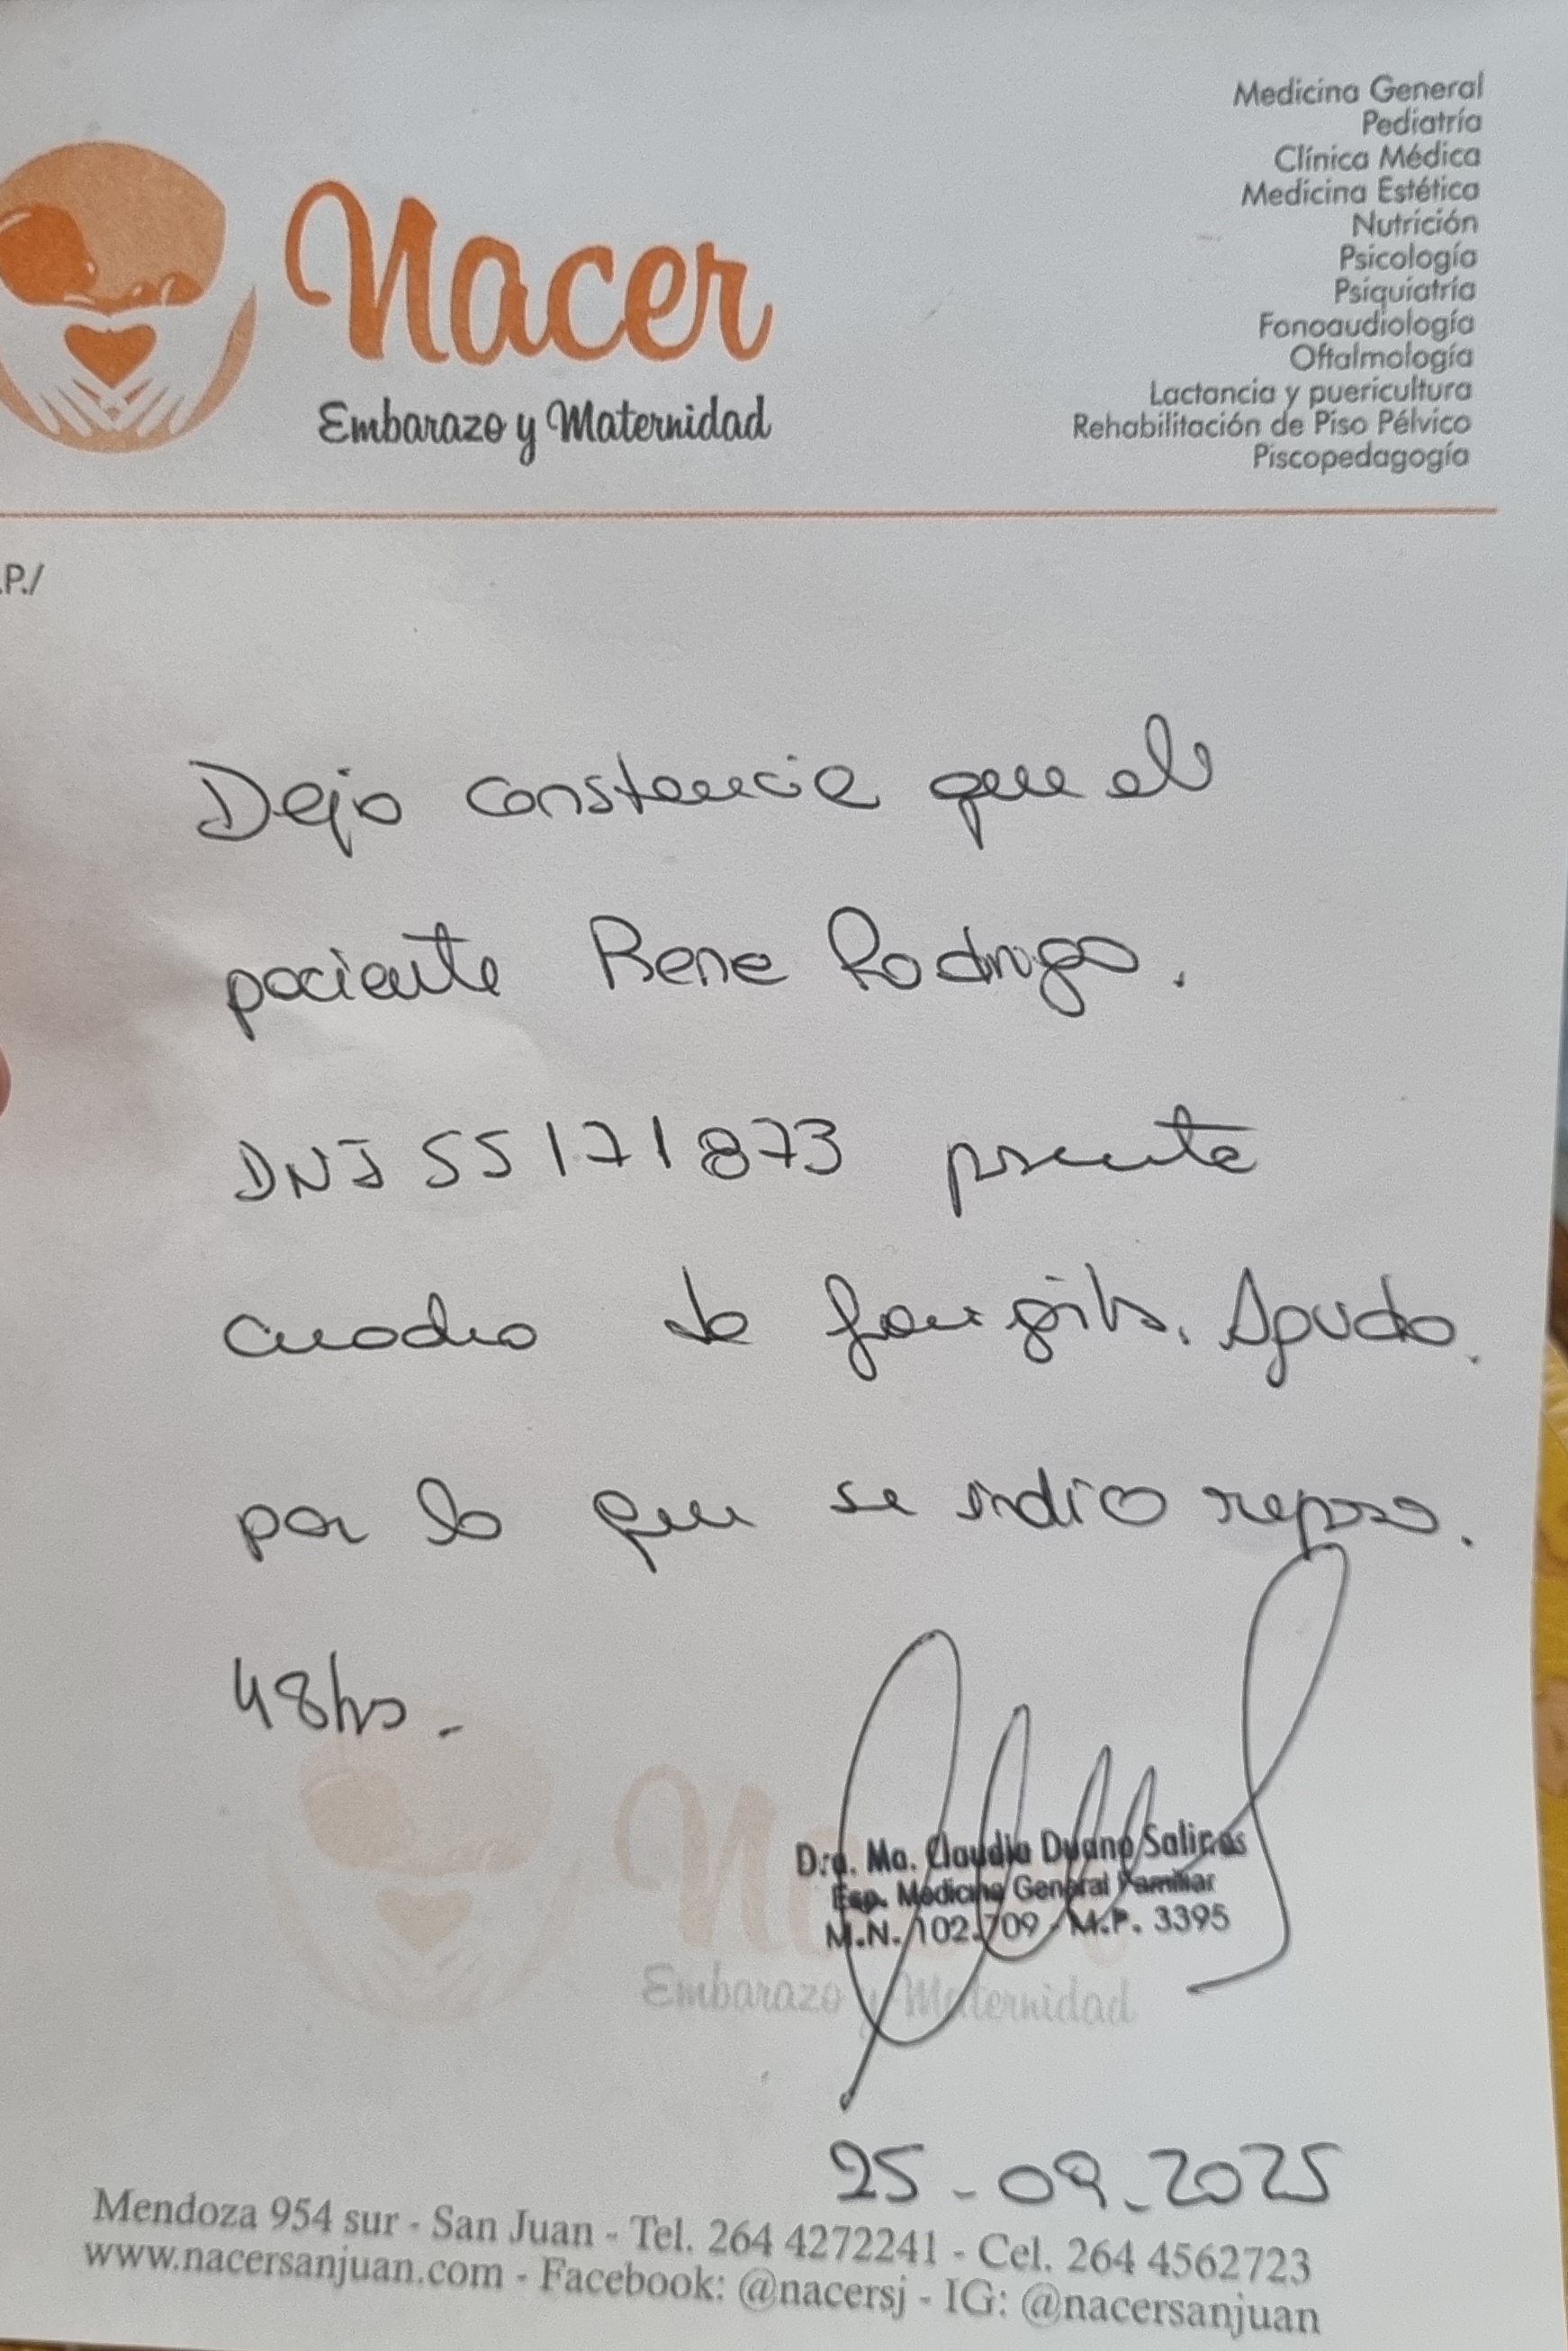 Medicina General
Pediatría
Clínica Médica
Medicina Estética
Nutrición
Psicología
Psiquiatría
Fonoaudiología
Oftalmología
Lactancia y puericultura
Rehabilitación de Piso Pélvico
Piscopedagogía
Nacer
Embarazo y Maternidad
.P./
Dejo constancia que el
paciente Rene Rodrigo.
DNI 55171873 presenta
cuadro de faringitis. Aguda.
por lo que se indico reposo.
48hs.-
Nacer
Embarazo y Maternidad
Dra. Ma. Claudia Duano Salinas
Esp. Medicina General Familiar
M.N. 102.709 - M.P. 3395
25-09-2025
Mendoza 954 sur - San Juan - Tel. 264 4272241 - Cel. 264 4562723
www.nacersanjuan.com - Facebook: @nacersj - IG: @nacersanjuan